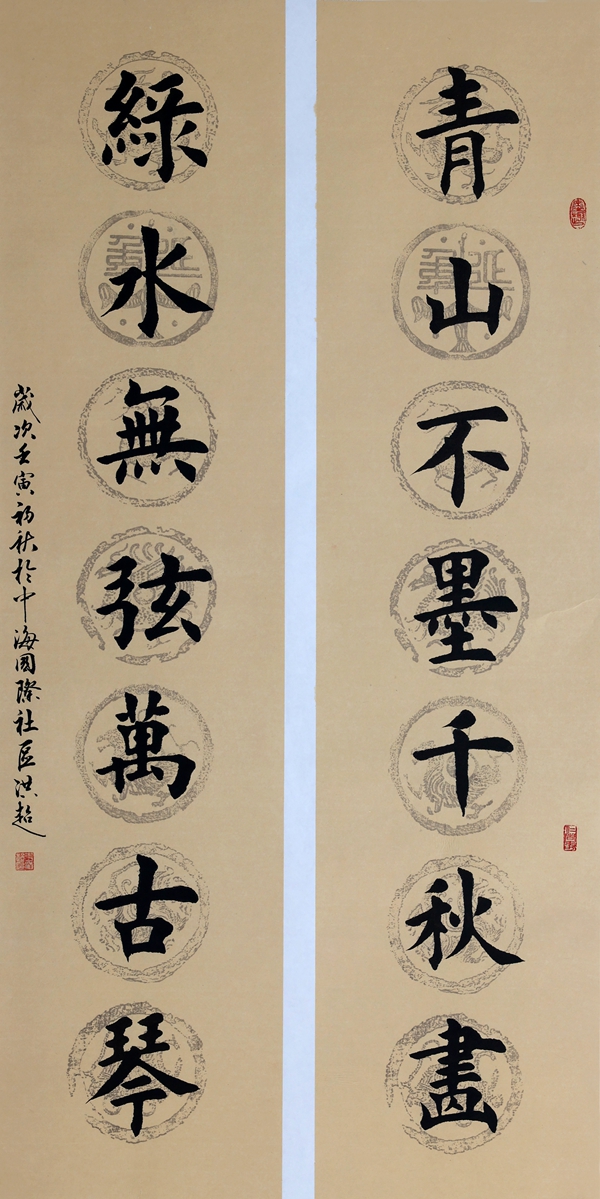 青山不墨千秋畫
綠水無弦萬古琴
歲次壬寅初秋於中海國際社區洪超